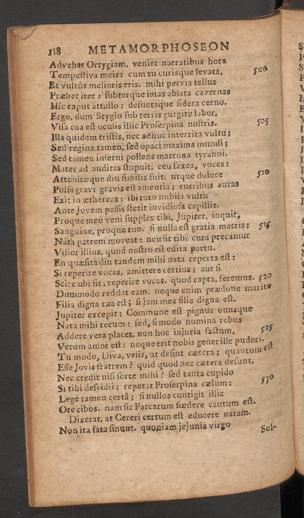 118 METAMORPHOSEON
Advehar Ortygiam. veniet narratibus hora
Tempestiva meis: cum tu curisque levata, 500
Et vultûs melioris eris. mihi pervia tellus
Præbet iter: subterque imas ablata cavernas
Hic caput attollo: desuetaque sidera cerno.
Ergo, dum Stygio sub terris gurgite labor,
Visa tua est oculis illic Proserpina nostris. 505
Illa quidem tristis, nec adhuc interrita vultu;
Sed regina tamen, sed opaci maxima mundi;
Sed tamen inferni pollens matrona tyranni.
Mater ad auditas stupuit, ceu saxea, voces:
Attonitæque diu similis fuit. utque dolore 510
Pulsa gravi gravis est amentia; curribus auras
Exit in æthereas: ibi toto nubila vultu
Ante Jovem passis stetit invidiosa capillis.
Proque meo veni supplex tibi, Jupiter, inquit,
Sanguine, proque tuo. si nulla est gratia matris; 515
Nata patrem moveat: neu sit tibi cura precamur
Vilior illius, quod nostro est edita partu.
En quæsita diu tandem mihi nata reperta est:
Si reperire vocas, amittere certius; aut si
Scire ubi sit, reperire vocas. quod rapta, feremus. 520
Dummodo reddat eam. neque enim prædone marito
Filia digna tua est; si jam mea filia digna est.
Jupiter excepit: Commune est pignus onusque
Nata mihi tecum: sed, si modo nomina rebus
Addere vera placet, non hoc injuria factum, 525
Verum amor est: neque erit nobis gener ille pudori.
Tu modo, Diva, velis, ut desint cætera; quantum est
Esse Jovis fratrem? quid quod nec cætera desunt.
Nec credit nisi sorte mihi? sed tanta cupido
Si tibi dessidii; repetat Proserpina cælum: 530
Lege tamen certâ; si nullos contigit illic
Ore cibos. nam sic Parcarum fœdere cautum est.
Dixerat, at Cereri certum est educere natam.
Non ita fata sinunt. quoniam jejunia virgo
Sol-